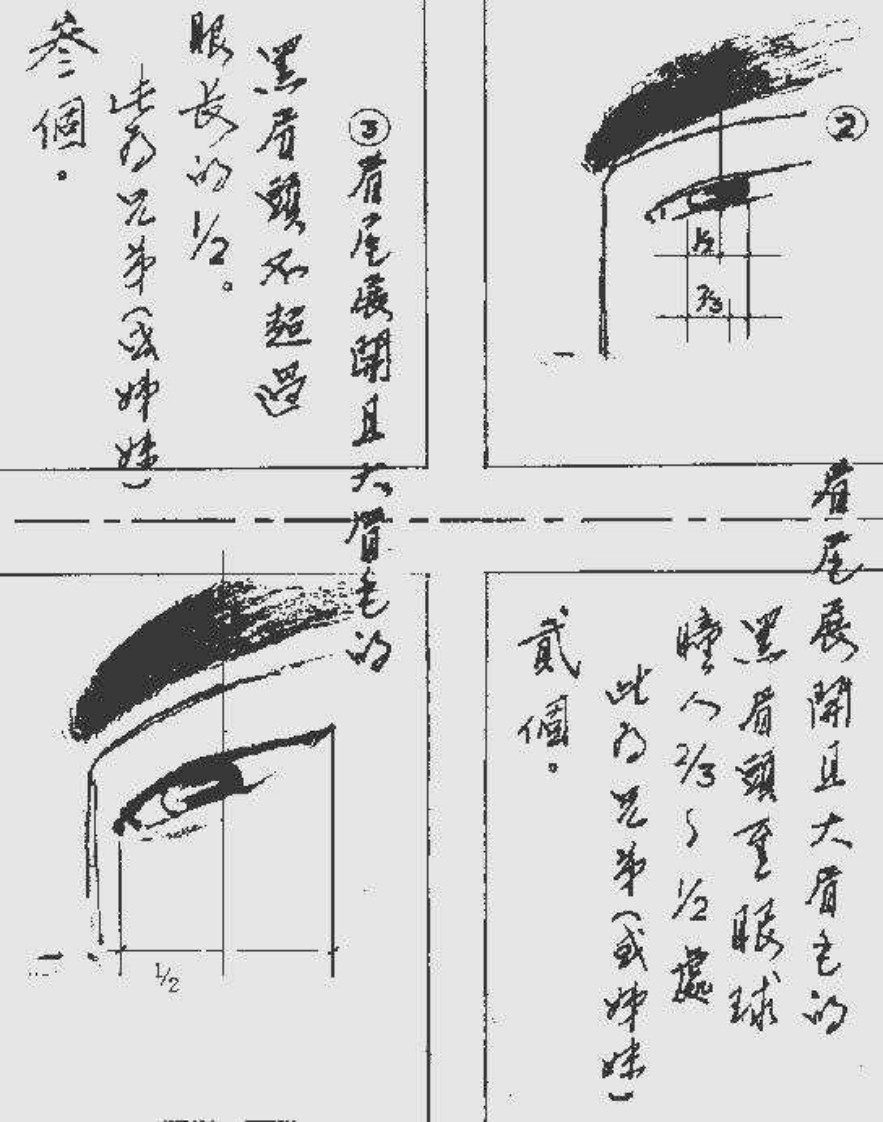 ②
眉尾展開且大眉毛的
黑眉頭至眼球
瞳人2/3～1/2處
此為兄弟(或姊妹)
貳個。
1/2
2/3
③眉尾展開且大眉毛的
黑眉頭不超過
眼長的1/2。
此為兄弟(或姊妹)
叁個。
1/2